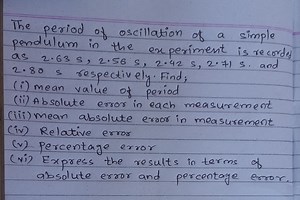 The period of oscillation of a simple
pendulum in the experiment is recorded
as 2.63 s, 2.56 s, 2.42 s, 2.71 s. and
2.80 s respectively. Find;
(i) mean value of period
(ii) Absolute error in each measurement
(iii) mean absolute error in measurement
(iv) Relative error
(v) percentage error
(vi) Express the results in terms of
absolute error and percentage error.